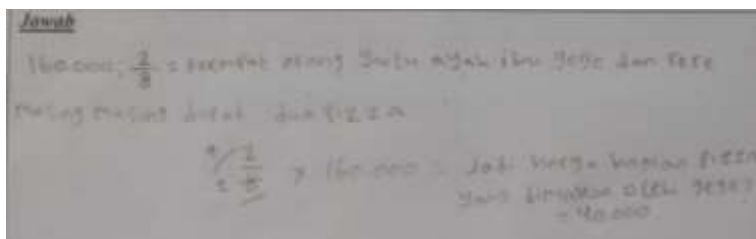 Jawab
160.000, 2/8 = keempat orang yaitu ayah ibu gege dan
masing masing dua pizza
2/8 x 160.000 = Jadi harga bagian pizza
yang dimakan oleh gege
= 40.000